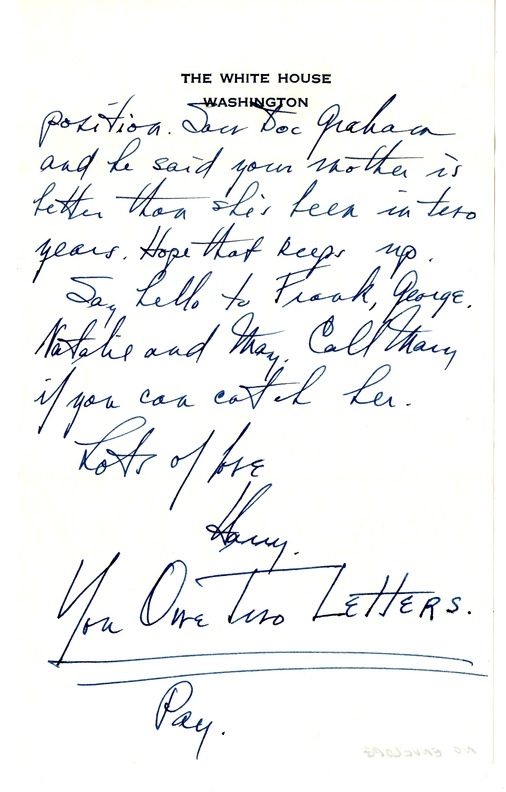 THE WHITE HOUSE
WASHINGTON
position. Saw Doc Graham
and he said your mother is
better than she's been in two
years. Hope that keeps up.
Say hello to Frank, George,
Natalie and May. Call Mary
if you can catch her.
Lots of love
Harry.
You Owe Two Letters.
Pay.
NO ENVELOPE